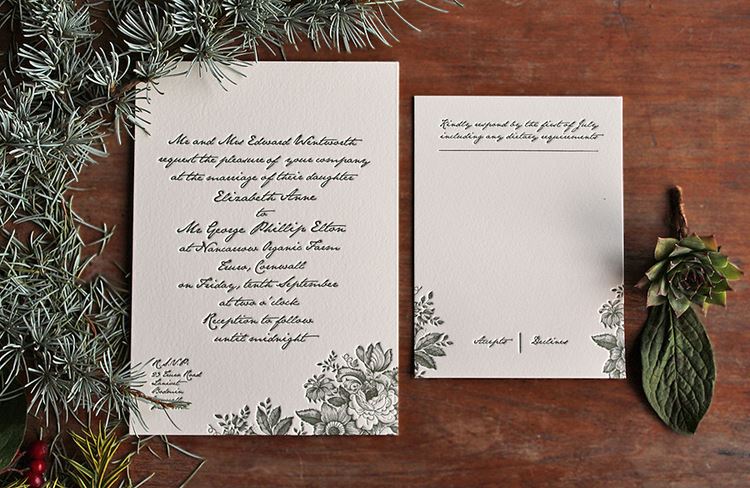 Mr and Mrs Edward Wentworth
request the pleasure of your company
at the marriage of their daughter
Elizabeth Anne
to
Mr George Phillip Elton
at Nancarrow Organic Farm
Truro, Cornwall
on Friday, tenth September
at two o'clock
Reception to follow
until midnight
R.S.V.P.
23 Truro Road
Lanivet
Bodmin
Kindly respond by the first of July
including any dietary requirements
Accepts | Declines